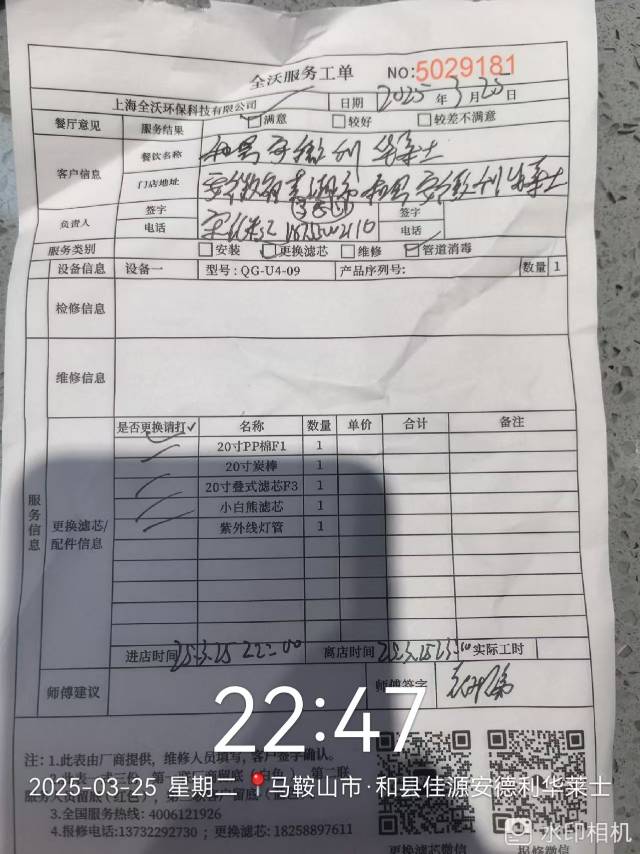 全沃服务工单 NO:5029181
上海全沃环保科技有限公司 日期 2025年3月25日
餐厅意见 服务结果 ☑满意 □较好 □较差不满意
客户信息 餐饮名称
门店地址
负责人 签字 签字
电话 电话
服务类别 □安装 ☑更换滤芯 □维修 ☑管道消毒
设备信息 设备一 型号:QG-U4-09 产品序列号: 数量 1
检修信息
维修信息
服务信息
更换滤芯/配件信息
是否更换请打✓ 名称 数量 单价 合计 备注
20寸PP棉F1 1
20寸炭棒 1
20寸叠式滤芯F3 1
小白熊滤芯 1
紫外线灯管 1
进店时间 25.3.25 22:00 离店时间 实际工时
师傅建议 师傅签字
22:47
注:1.此表由厂商提供,维修人员填写,客户签字确认。
2025-03-25 星期二 马鞍山市·和县佳源安德利华莱士
3.全国服务热线:4006121926
4.报修电话:13732292730;更换滤芯:18258897611
更换滤芯微信 报修微信
水印相机